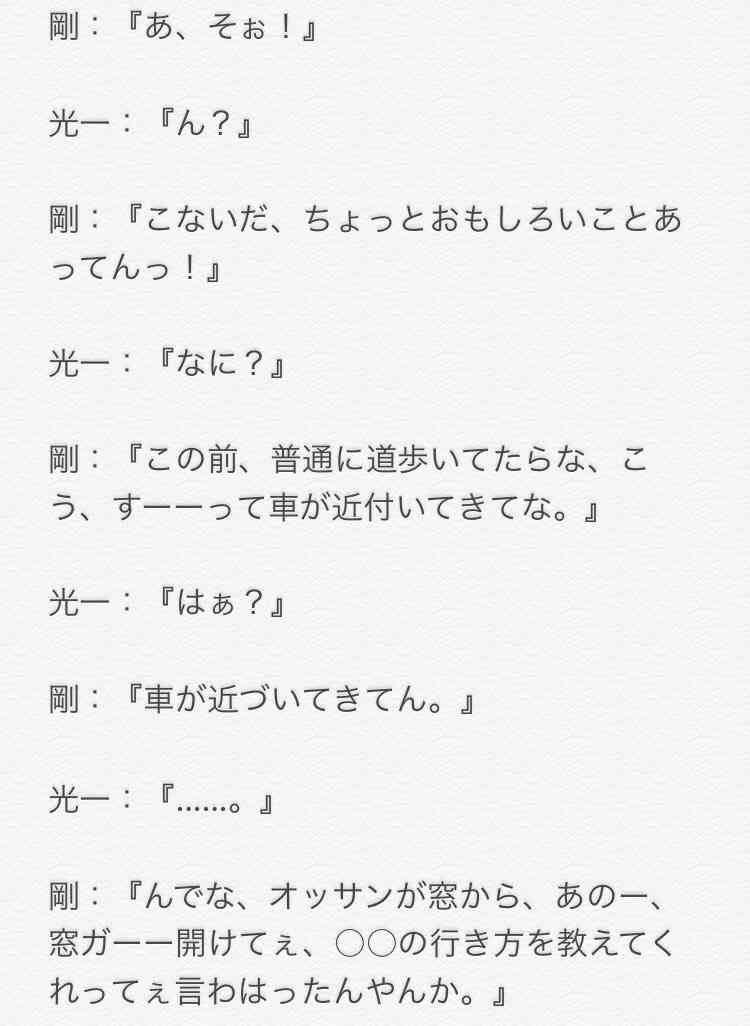 剛：『あ、そぉ！』
光一：『ん？』
剛：『こないだ、ちょっとおもしろいことあ
ってんっ！』
光一：『なに？』
剛：『この前、普通に道歩いてたらな、こ
う、すーーって車が近付いてきてな。』
光一：『はぁ？』
剛：『車が近づいてきてん。』
光一：『……。』
剛：『んでな、オッサンが窓から、あのー、
窓ガーー開けてぇ、〇〇の行き方を教えてく
れってぇ言わはったんやんか。』